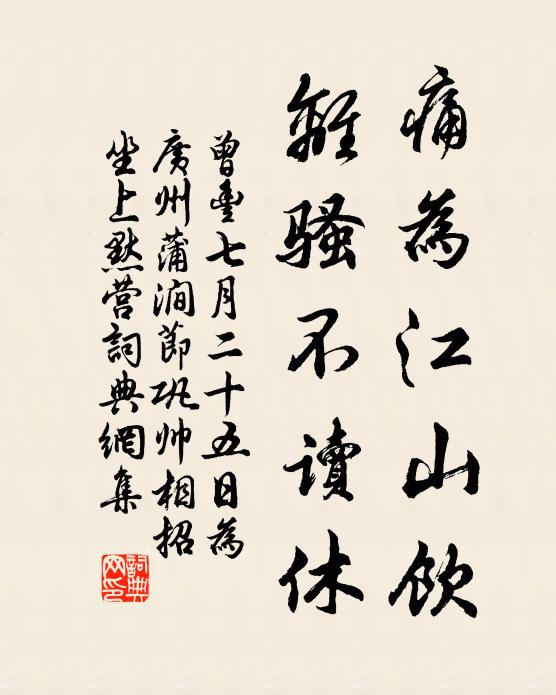 痛為江山飲
離騷不讀休
曾豊七月二十五日為
廣州蒲澗節巩帅相招
坐上默營詞典網集
詞典網印